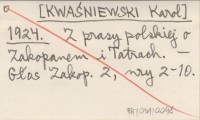 [KWAŚNIEWSKI Karol]
1924. Z prasy polskiej o
Zakopanem i Tatrach. –
Głos Zakop. 2, nry 2-10.